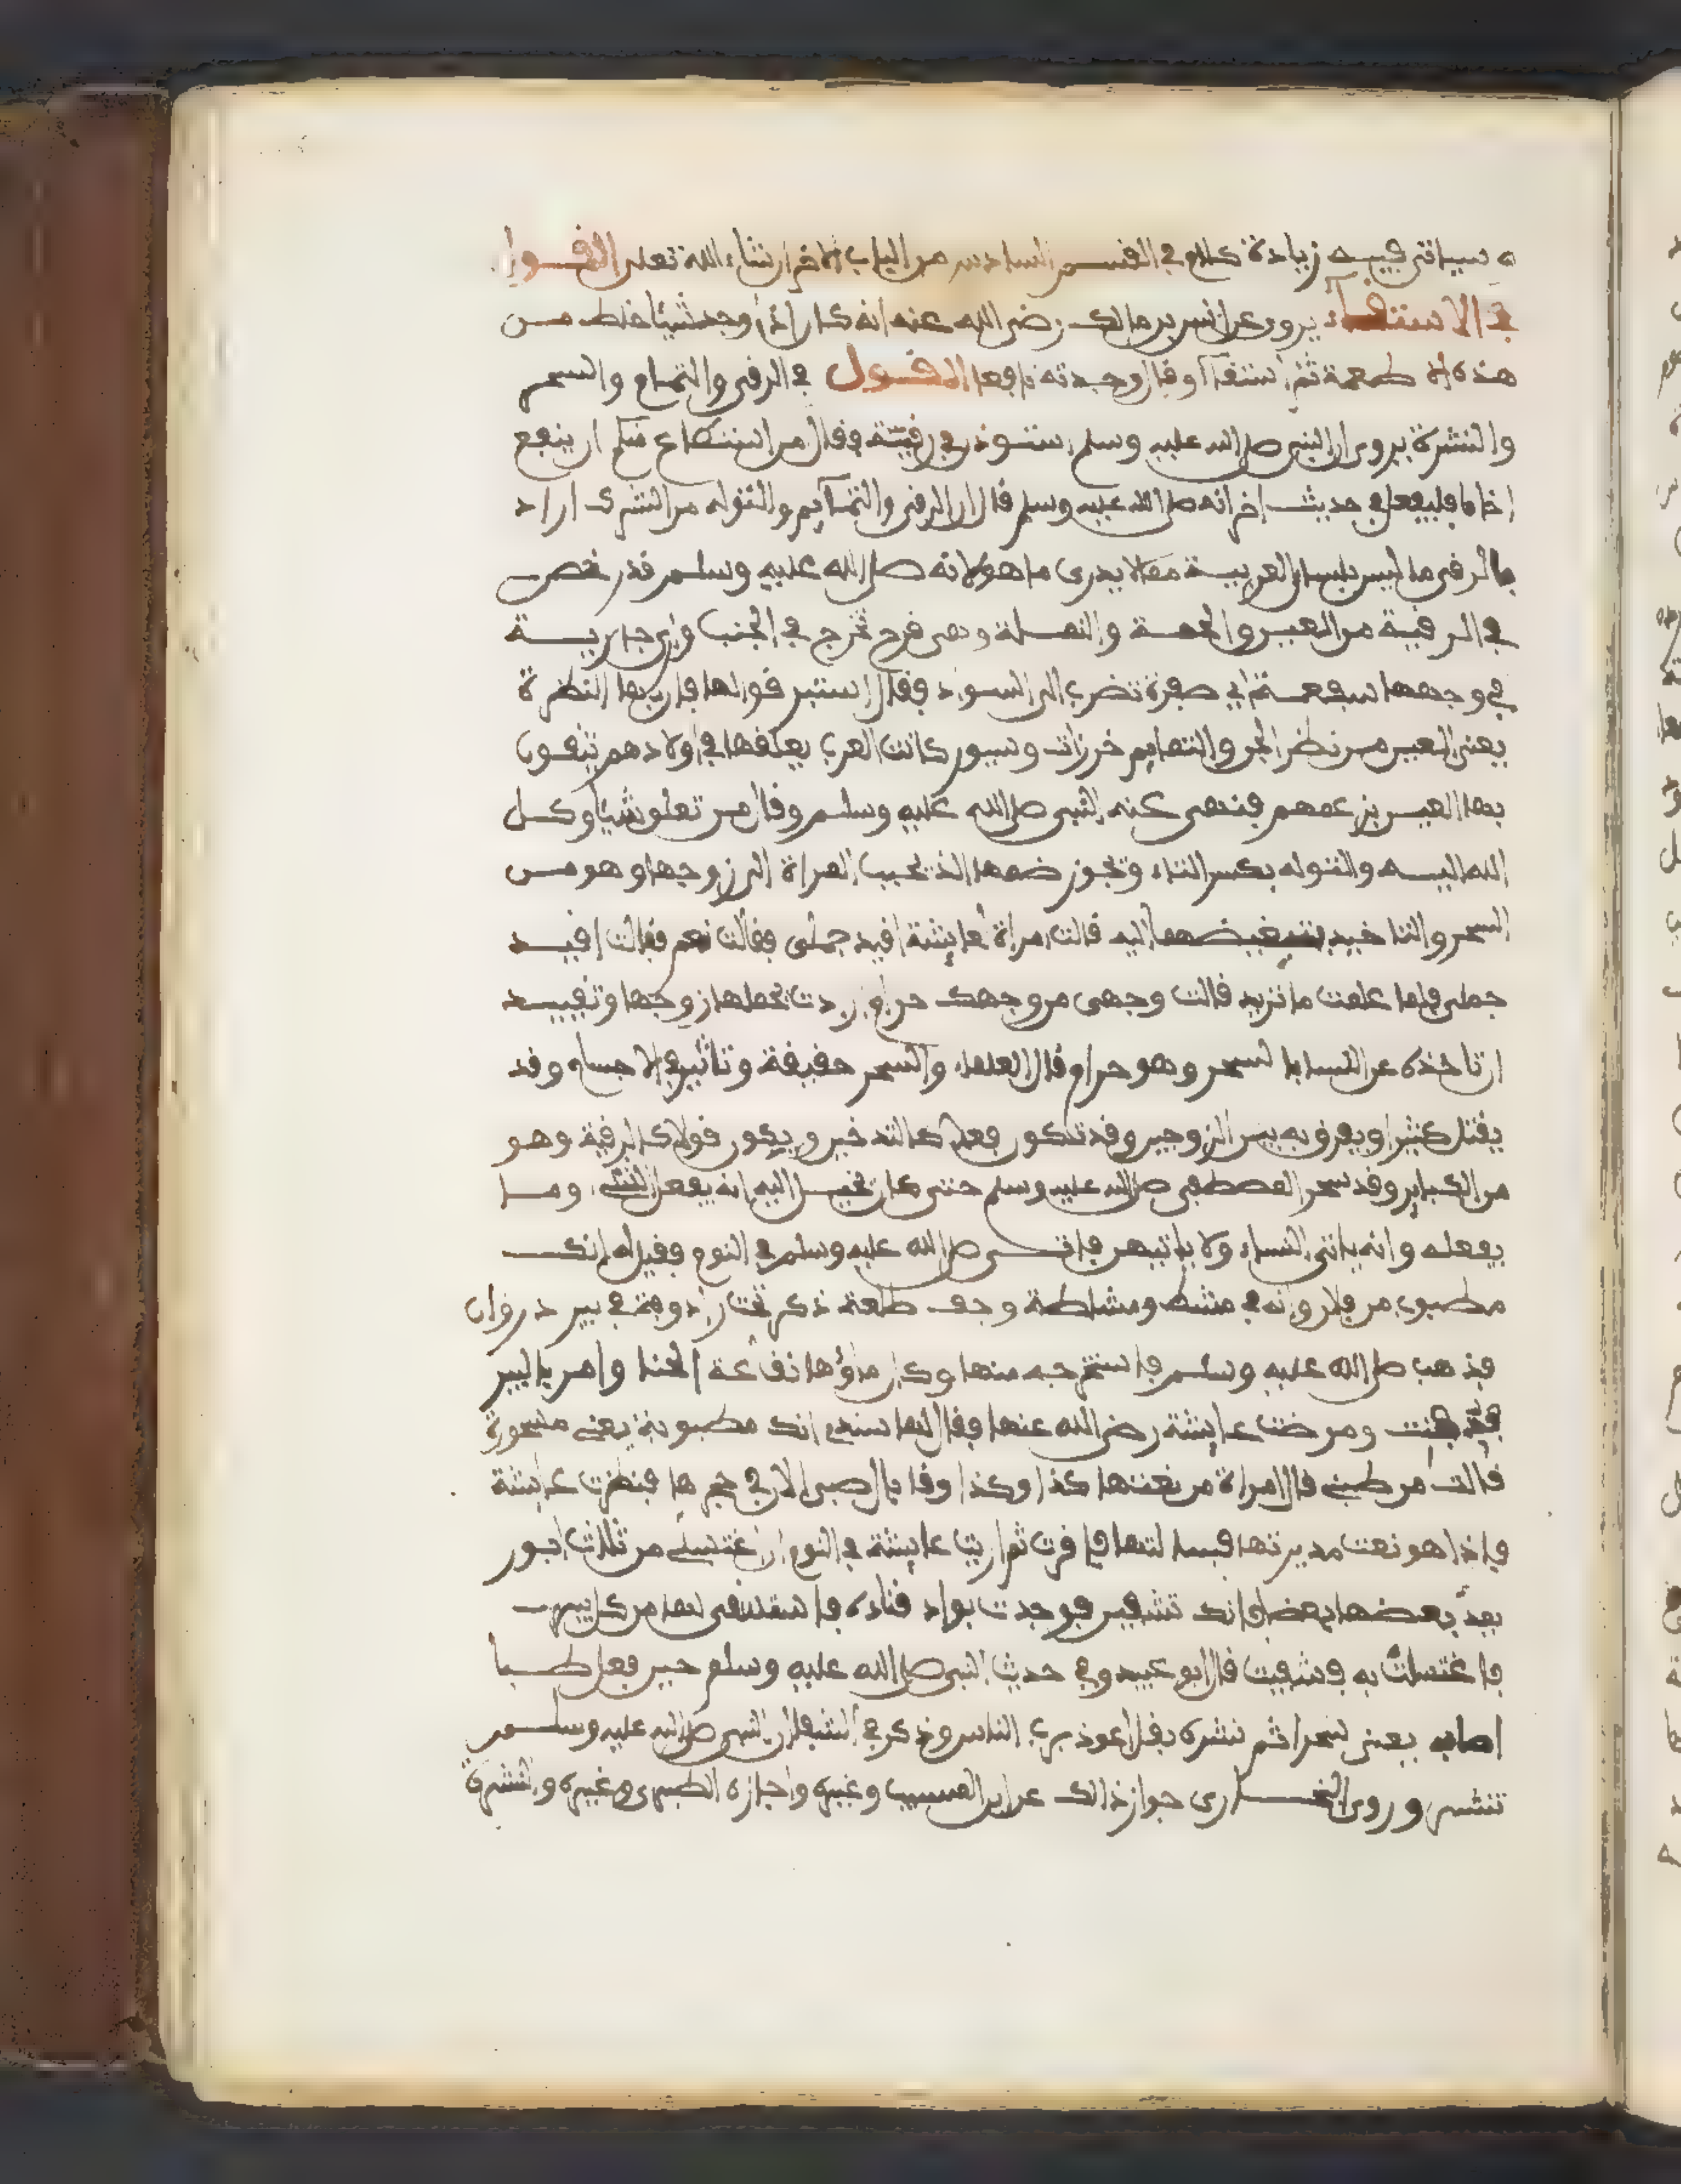 ه سياتي فيه زيادة كلام في القسم السادس من الباب الاخر ان شاء الله تعلى القول
في الاستقاء يروى عن انس بن مالك رضي الله عنه انه كان اذا وجد شيئا خلط من
هذه طعمة ثم استقاء وقال وجدته نافعا القول في الرقى والتمايم والسحر
والنشرة يروى ان النبي صلى الله عليه وسلم استوذن في رقية فقال من استطاع منكم ان ينفع
اخاه فليفعل في حديث اخر انه صلى الله عليه وسلم قال ان الرقى والتمايم والتوله من الشرك اراد
بالرقى ما ليس بلسان العربية مما لا يدرى ما هو لانه صلى الله عليه وسلم قد رخص
في الرقية من العين والحمة والنملة وهي قرح تخرج في الجنب وراى جارية
في وجهها سفعة اي صفرة تضرب الى السواد فقال استرقوا لها فان بها النظرة
يعني العين من نظر الجن والتمايم خرزات وسيور كانت العرب يعلقها في اولادهم يتقون
بها العين بزعمهم فنهى عنه النبي صلى الله عليه وسلم وقال من تعلق شيئا وكل
الله اليه والتوله بكسر التاء وتجوز ضمها الذ تحبب المراة الى زوجها وهو من
السحر والتاخيذ بتبغيضها اليه قالت امراة لعايشة اقيد جملى فقالت نعم فقالت اقيد
جملى فلما علمت ما تريد قالت وجهى من وجهك حرام ارادت بجملها زوجها وتقييد
ان تاخذه عن النساء بالسحر وهو حرام وقال العلماء والسحر حقيقة وتاثير في الاجسام وقد
يقتل كثيرا ويفرق به بين الزوجين وقد تكون فعلا كالتدخين ويكون قولا كالرقية وهو
من الكباير وقد سحر المصطفى صلى الله عليه وسلم حتى كان يخيل اليه انه يفعل الشيء وما
يفعله وانه ياتي النساء ولا ياتيهن فاتى صلى الله عليه وسلم في النوم فقيل له انك
مطبوب من فلان وانه في مشط ومشاطة وجف طلعة ذكر تحت راعوفة في بير ذروان
فذهب صلى الله عليه وسلم فاستخرجه منها وكان ماؤها نقاعة الحنا وامر بالبير
فدفنت ومرضت عايشة رضي الله عنها فقال لها سندي انك مطبوبة يعني مسحورة
قالت من طبني قال امراة من نعتها كذا وكذا وقد بال صبي الان في حجرها فنظرت عايشة
فاذا هو نعت مدبرتها فسالتها فاقرت ثم اريت عايشة في النوم ان اغتسلي من ثلاث ابور
يمد بعضها بعضا فانك تشفين فوجدت بواد قناة فاستقي لها من كل بير
فاغتسلت به فشفيت قال ابو عبيد وفي حديث النبي صلى الله عليه وسلم حين فعل طبا
اصابه يعني سحرا ثم نشره بقل اعوذ برب الناس وذكر في الشفا ان النبي صلى الله عليه وسلم
تنشر وروى البخارى جواز ذالك عن ابن المسيب وغيره واجازه الطبرى وغيره والنشرة